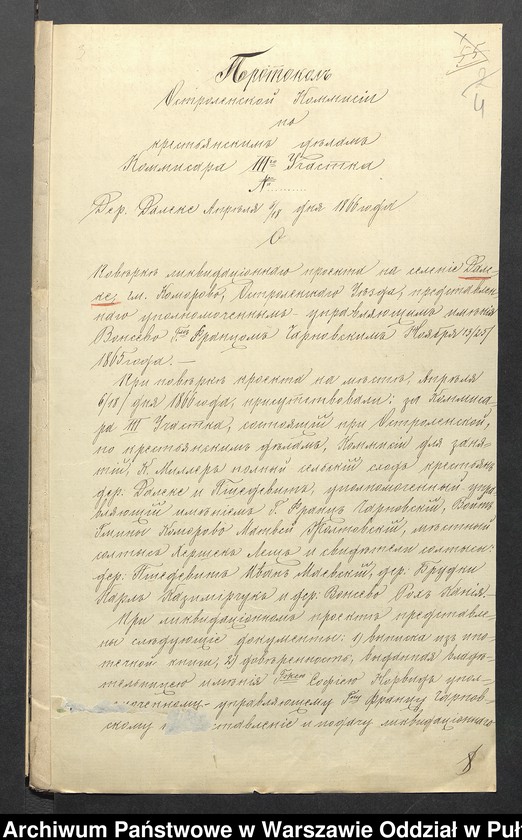 Протоколъ
Остроленской Коммисіи
по
крестьянскимъ дѣламъ
Коммисара III го Участка
№
Дер. Далеке Апрѣля 6/18 дня 1866 года
О
повѣркѣ ликвидаціоннаго проекта на селеніе Дале-
ке, гм. Коморово, Остроленскаго Уѣзда, представлен
наго уполномоченнымъ управляющимъ имѣнія
Вонсево Францомъ Чарновскимъ Ноября 13/25/
1865 года. —
При повѣркѣ проекта на мѣстѣ, Апрѣля
6/18/ дня 1866 года, присутствовали: за Коммиса-
ра III Участка, состоящій при Остроленской,
по крестьянскимъ дѣламъ, Коммисіи для заня-
тій, К. Миллеръ полный сельскій сходъ крестьянъ
дер. Далеке и уполномоченный упра
вляющій имѣніемъ Г. Францъ Чарновскій, Войтъ
Гмины Коморово Матвей Жолтовскій, мѣстный
солтысъ Лещъ и свидѣтели солтысы:
дер: Иванъ Маевскій, дер:
Карлъ и дер: Вонсево
При ликвидаціонномъ проектѣ представле-
ны слѣдующіе документы: 1) выписка изъ ипо-
течной книги, 2) довѣренность, выданная владѣ-
тельницею имѣнія Софіею упол-
управляющему Францу Чарнов-
скому подачу ликвидаціоннаго
Archiwum Państwowe w Warszawie Oddział w Puł